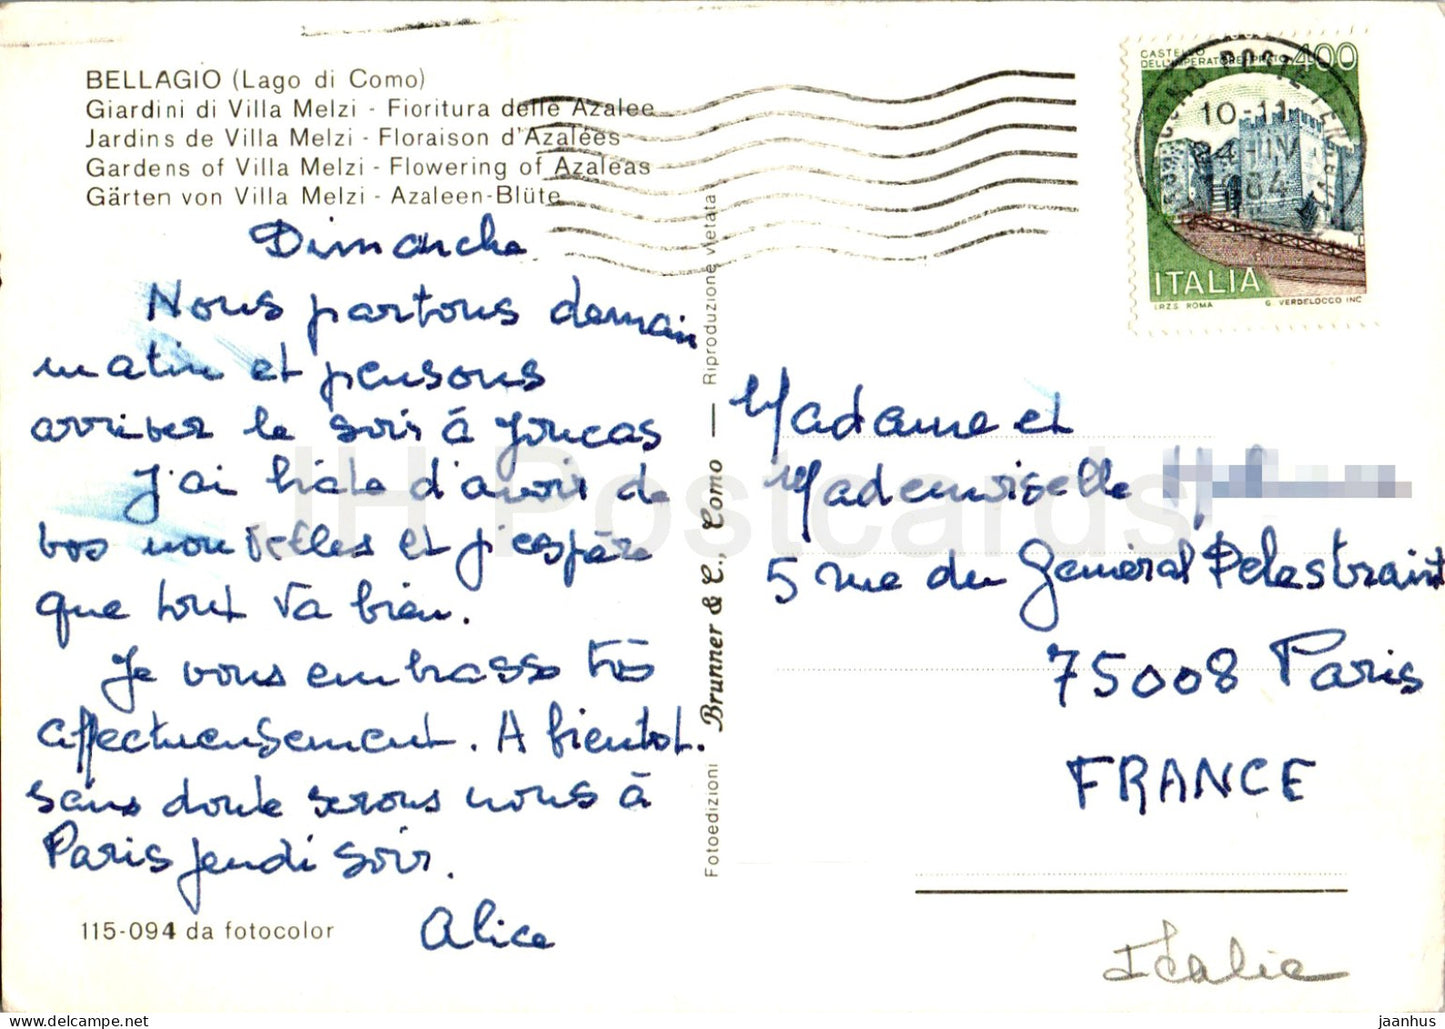 BELLAGIO (Lago di Como)
Giardini di Villa Melzi - Fioritura delle Azalee
Jardins de Villa Melzi - Floraison d'Azalées
Gardens of Villa Melzi - Flowering of Azaleas
Gärten von Villa Melzi - Azaleen-Blüte
Dimanche
Nous partons demain
matin et pensons
arriver le soir à Joucas
J'ai hâte d'avoir de
vos nouvelles et j'espère
que tout va bien.
Je vous embrasse très
affectueusement. A bientôt.
sans doute serons nous à
Paris jeudi soir.
Alice
115-094 da fotocolor
Fotoedizioni Brunner & C., Como — Riproduzione vietata
CASTELLO
DELL'IMPERATORE PRATO 400
ITALIA
I.P.Z.S. ROMA G. VERDELOCCO INC
COMO POSTE FERROVIA
10-11
IV
Madame et
Mademoiselle
5 rue du Général Delestraint
75008 Paris
FRANCE
Italie
JH Postcards
jaanhus